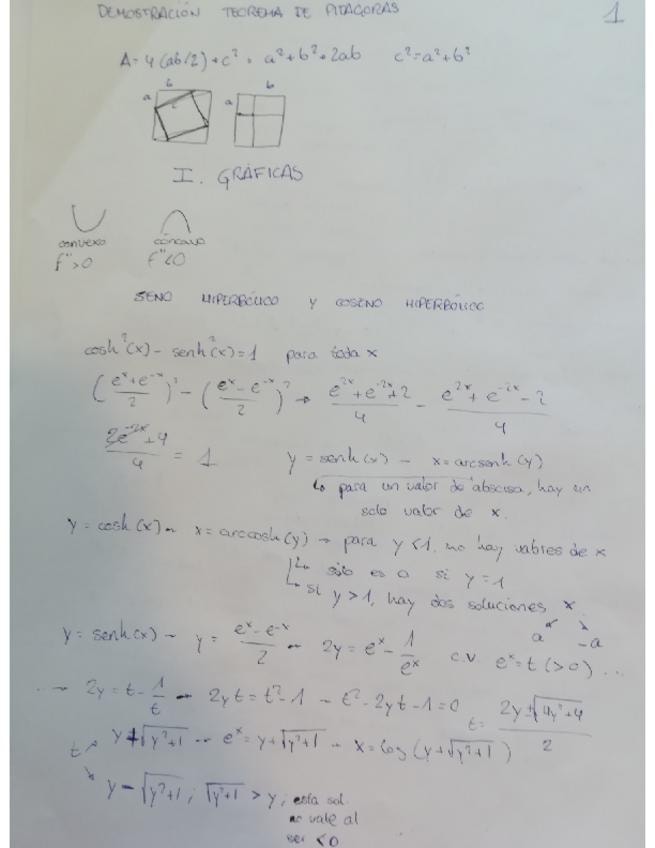 DEMOSTRACIÓN TEOREMA DE PITAGORAS
1
A = 4(ab/2) + c² = a² + b² + 2ab c² = a² + b²
b b
a c a
I. GRÁFICAS
convexo cóncavo
f''>0 f''<0
SENO HIPERBÓLICO Y COSENO HIPERBÓLICO
cosh²(x) - senh²(x) = 1 para toda x
((eˣ+e⁻ˣ)/2)² - ((eˣ-e⁻ˣ)/2)² → (e²ˣ+e⁻²ˣ+2)/4 - (e²ˣ+e⁻²ˣ-2)/4
(2e⁻²ˣ+4)/4 = 1 y = senh(x) - x = arcsenh(y)
↳ para un valor de abscisa, hay un
solo valor de x.
y = cosh(x) - x = arccosh(y) → para y<1, no hay valores de x
↳ sólo es 0 si y = 1
↳ si y > 1, hay dos soluciones x
a -a
y = senh(x) - y = (eˣ-e⁻ˣ)/2 - 2y = eˣ - 1/eˣ c.v. eˣ = t (>0) ...
... - 2y = t - 1/t - 2yt = t² - 1 - t² - 2yt - 1 = 0 t = (2y ± √(4y²+4))/2
t ↗ y + √(y²+1) - eˣ = y + √(y²+1) - x = log(y + √(y²+1))
↘ y - √(y²+1) ; √(y²+1) > y ; esta sol.
no vale al
ser <0